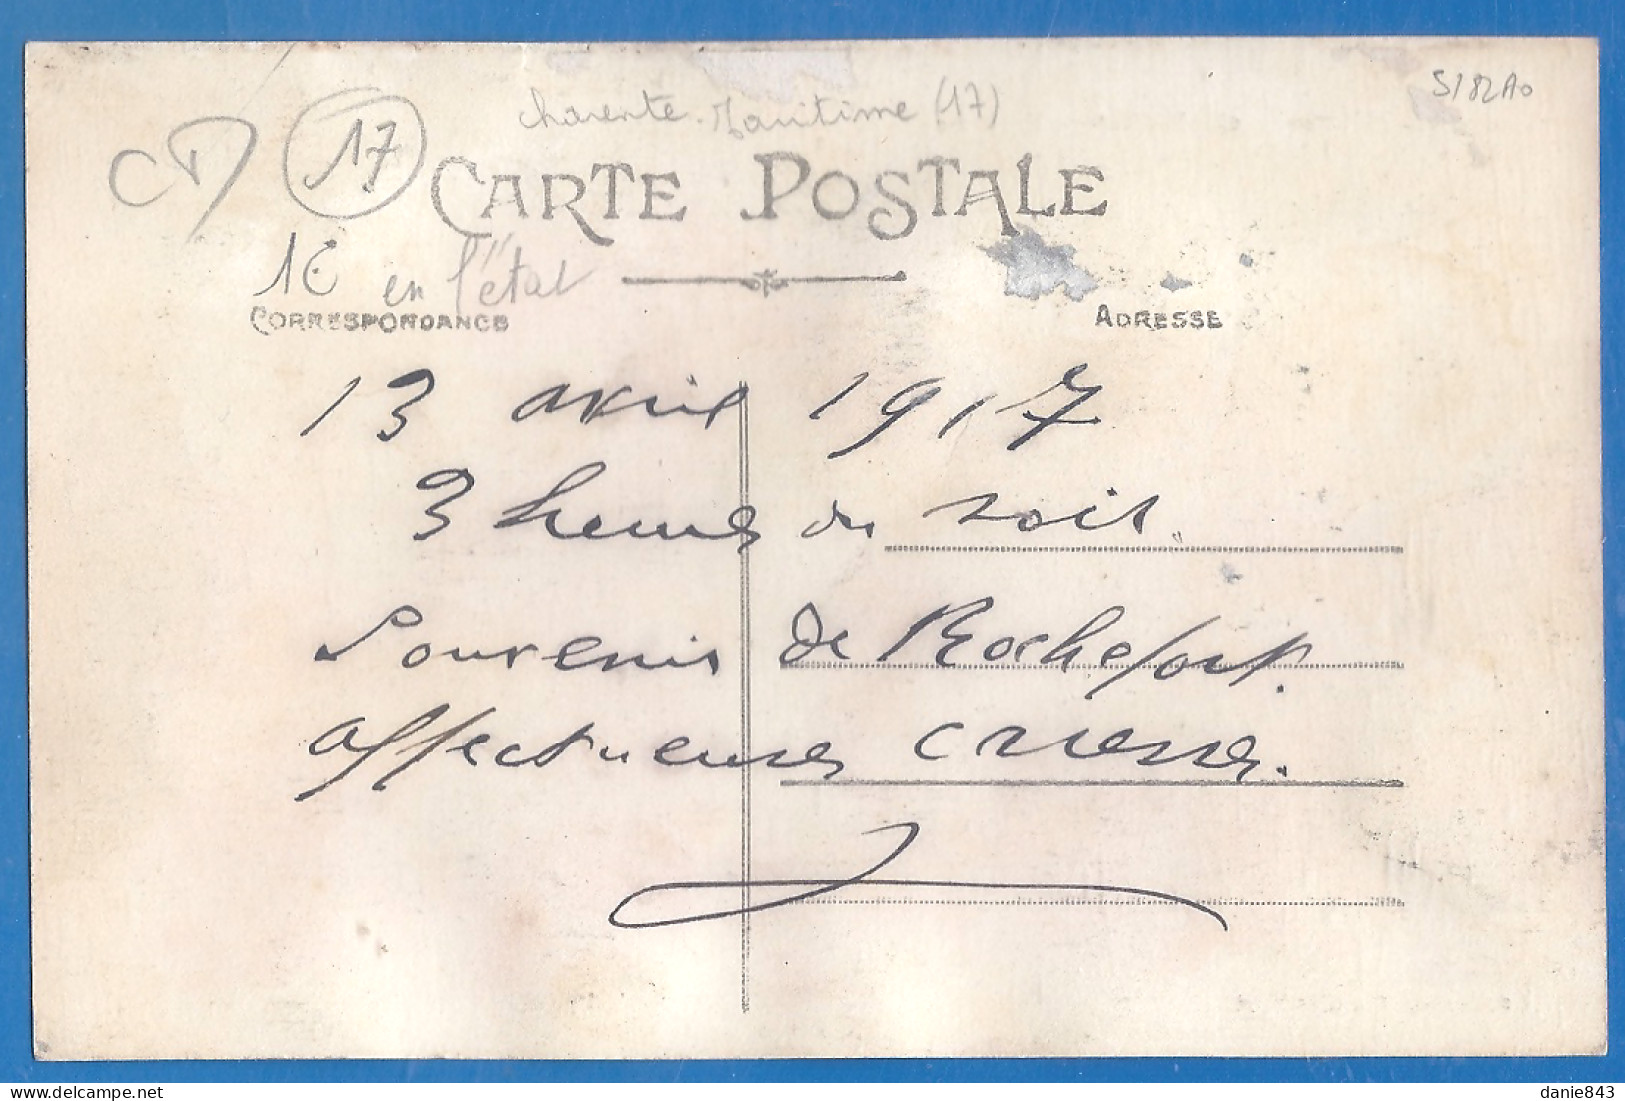 S182A0
Charente-Maritime (17)
17
CARTE POSTALE
1€ en l'état
CORRESPONDANCE
ADRESSE
13 avril 1917
3 heures du soir.
Souvenir de Rochefort.
affectueuses
danie843